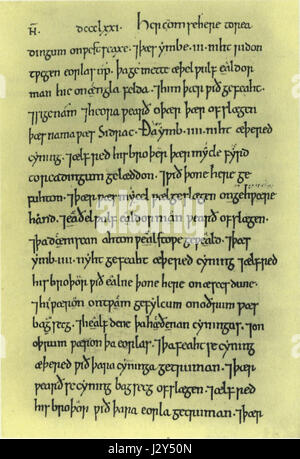 AN. dccclxxi. Her com se here to rea
dingum on ƿest seaxe. ⁊þæs ymbe .iii. niht ridon
tƿegen eorlas up. þa gemette æþelƿulf ealdor
man hie on engla felda. ⁊him þær ƿið gefeaht.
⁊sige nam. ⁊heora ƿearð oþer þær ofslægen
þæs nama ƿæs sidrac. Ða ymb .iiii. niht æþered
cyning. ⁊ælfred his broþer þær mycle fyrd
to readingum gelæddon. ⁊ƿið þone here ge
fuhton. ⁊þær ƿæs mycel ƿæl geslægen on gehƿæþere
hand. ⁊æþelƿulf ealdorman ƿearð ofslægen.
⁊þa deniscan ahton ƿælstoƿe geƿeald. ⁊þæs
ymb .iiii. nyht gefeaht æþered cyning ⁊ælfred
his broþur ƿið ealne þone here on æsces dune.
⁊hi ƿæron on tƿam gefylcum on oðrum ƿæs
bagsecg. ⁊healfdene þa hæðenan cyningas. ⁊on
oþrum ƿæron þa eorlas. ⁊þa feaht se cyning
æþered ƿið þara cyninga getruman. ⁊þær
ƿearð se cyning bagsecg ofslægen. ⁊ælfred
his broþor ƿið þara eorla getruman. ⁊þær
alamy
Image ID: J2Y50N
www.alamy.com